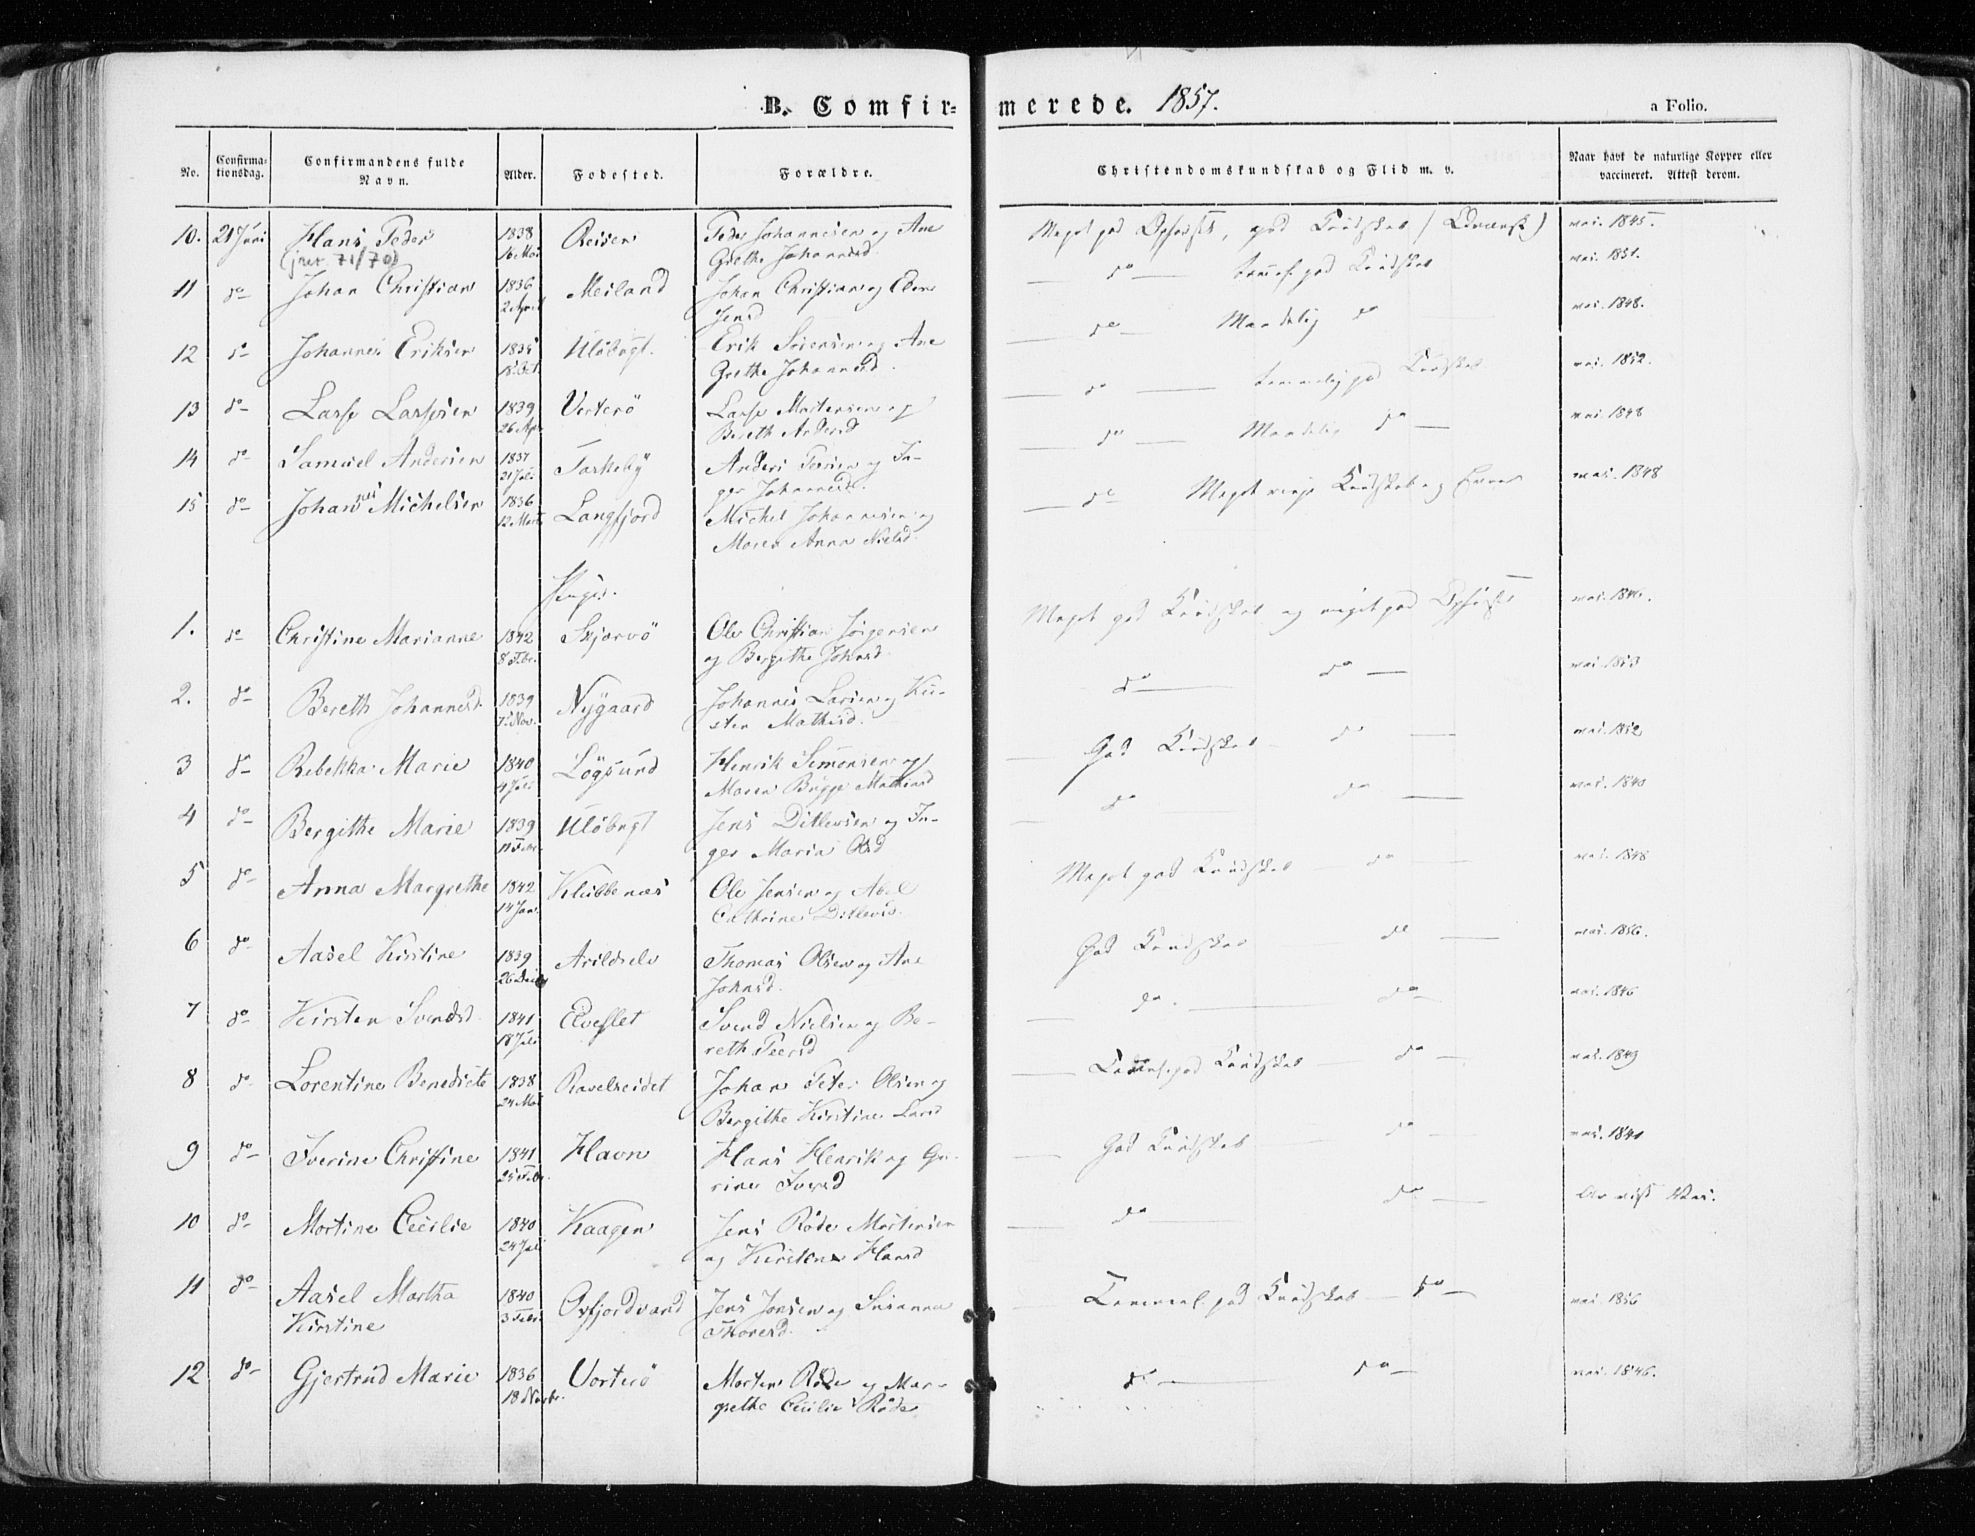 B. Comfir= merede. 1857.
a Folio.
No. Confirma= tionsdag. Confirmandens fulde Navn. Alder. Fodested. Forældre. Christendomskundskab og Flid m. v. Naar havt de naturlige Kopper eller vaccineret. Attest derom.
10. 21 Juni Hans Peder 1838 Reisen Peder Johannesen og Ane vac. 1845
16 Mai Grethe Johannesd.
11 do Johan Christian 1836 Meiland Johan Christian og Elen do vac. 1851.
2 April Jensd
12 do Johannes Eriksen 1835 Ulöbugt. Erik Sörensen og Ane do Maadelig do vac. 1848.
Grethe Johannesd.
13 do Lars Larsen 1839 Vorterö Lars Mortensen og do temmelig god Kundskab vac. 1852.
26 Apr Bereth Andersd
14 do Samuel Andersen 1837 Taskeby Anders Peersen og In- do Maadelig do vac. 1848
21 Juli ger Johannesd.
15 do Johannes Michelsen 1836 Langfjord Michel Johannesen og do Meget ringe Kundskab og Evner vac. 1848
12 Marts Maren Anna Nielsd.
Piger.
1. do Christine Marianne 1842 Skjærvö Ole Christian Jörgensen Meget god Kundskab og meget god vac. 1846.
8 Febr. og Bergithe Johnsd.
2. do Bereth Johannesd. 1839 Nygaard Johannes Larsen og Kir- do do vac. 1853
7 Nov. sten Mathisd.
3 do Rebekka Marie 1840 Lögsund Henrik Simonsen og God Kundskab do vac. 1852
4 Juli Maren Brygge Mathiasd
4 do Bergithe Marie 1839 Ulöbugt Jens Ditlevsen og In- do do vac. 1840
11 Febr ger Maria Olsd
5 do Anna Margrethe 1842 Klubbenæs Ole Jensen og Abel Meget god Kundskab do vac. 1848
14 Jan. Cathrine Ditlevsd.
6 do Aasel Kirstine 1839 Arildselv Thomas Olsen og Ane God Kundskab do vac. 1856.
Johnsd.
7 do Kirsten Svendsd. 1841 Elveslet Svend Nielsen og Be- do do vac. 1846
18 Juli reth Peersd
8 do Lorentine Benedicte 1838 Ravelseidet Johan Peter Olsen og Kundskab do vac. 1849
24 Mai Bergithe Kirstine Larsd
9 do Iverine Christine 1841 Havn Hans Henrik og Gu- God Kundskab do
25 Febr. rine Iversd
10 do Martine Cecilie 1840 Kaagen Jens Röde Mortensen do do
24 Juli og Kirstene Hansd
11 do Aasel Martha 1840 Oxfjordvand Jens Jonsen og Susanna Temmel. god Kundskab do vac. 1856
Kirstine 3 Febr. Thoresd.
12 do Gjertrud Marie 1836 Vorterö Morten Röde og Mar- do do vac. 1846.
18 Novbr. grethe Cecilie Röde